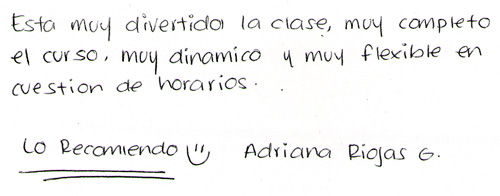 Esta muy divertida la clase, muy completo
el curso, muy dinamico y muy flexible en
cuestion de horarios.
Lo Recomiendo Adriana Riojas G.